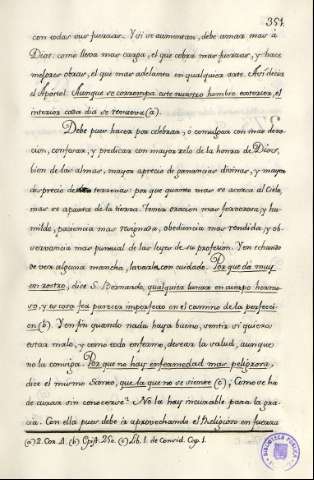 351
con todas sus fuerzas. Y si se aumentan, debe amar mas à
Dios. como lleva mas carga, el que cobra mas fuerzas, y hace
mejores obras, el que mas adelanta en qualquiera arte. Asi decia
el Apostol: Aunque se corrompa este nuestro hombre exterior, el
interior cada dia se renueva (a).
Debe pues hacer por celebrar, ò comulgar con mas devo-
cion, confesar, y predicar con mayor zelo de la honra de Dios,
bien de las almas, mayor aprecio de ganancias divinas, y mayor
desprecio de terrenas: por que quanto mas se acerca al Cielo,
mas se aparta de la tierra. Tenia oracion mas fervorosa, y hu-
milde, paciencia mas resignada, obediencia mas rendida, y ob-
servancia mas puntual de las leyes de su profesion. Y en echando
de ver alguna mancha, lavarla con cuidado. Por que dà muy
en rostro, dice S. Bernardo, qualquiera lunar en cuerpo hermo-
so, y es cosa fea parecer imperfecto en el camino de la perfecci-
on (b). Y en fin quando nada haya bueno, sentir si quiera
estar malo, y como todo enfermo, desear la salud, aunque
no la consiga. Por que no hay enfermedad mas peligrosa,
dice el mismo Santo, que la que no se siente (c); Como se ha
de curar sin conocerse? No la hay incurable para la gra-
cia. Con ella pues debe ir aprovechando el Religioso en fuerza
(a) 2. Cor. 4. (b) Epist. 250. (c) Lib. 1. de Consid. Cap. 1.
BIBLIOTECA